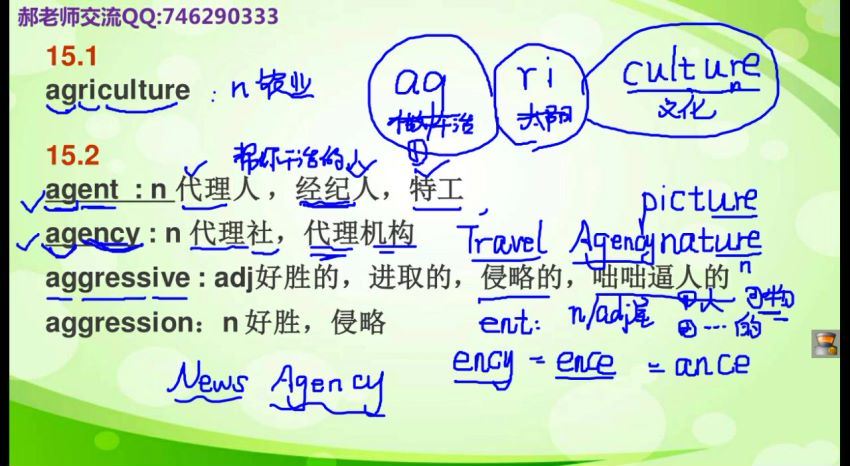 郝老师交流QQ:746290333
15.1
agriculture : n 农业
ag ri culture
n
太阳 文化
15.2
帮你干活的人
①
agent : n 代理人，经纪人，特工
picture
agency : n 代理社，代理机构
Travel Agency nature
n
aggressive : adj好胜的，进取的，侵略的，咄咄逼人的
ent: n/adj尾 ①人 ②物
③…的
aggression：n 好胜，侵略
ency = ence = ance
News Agency